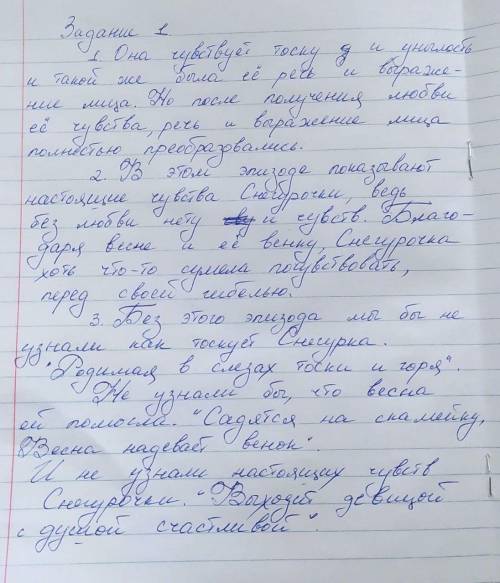 Задание 1
1. Она чувствует тоску и унылость
и такой же была её речь и выраже-
ние лица. Но после получения любви
её чувства, речь и выражение лица
полностью преобразовались.
2. В этом эпизоде показывают
настоящие чувства Снегурочки, ведь
без любви нету и чувств. Благо-
даря весне и её венку, Снегурочка
хоть что-то сумела почувствовать,
перед своей гибелью.
3. Без этого эпизода мы бы не
узнали как тоскует Снегурка.
"Родимая в слезах тоски и горя".
Не узнали бы, что весна
ей помогла. "Садятся на скамейку,
Весна надевает венок".
И не узнали настоящих чувств
Снегурочки. "Выходит девицой
с душой счастливой".